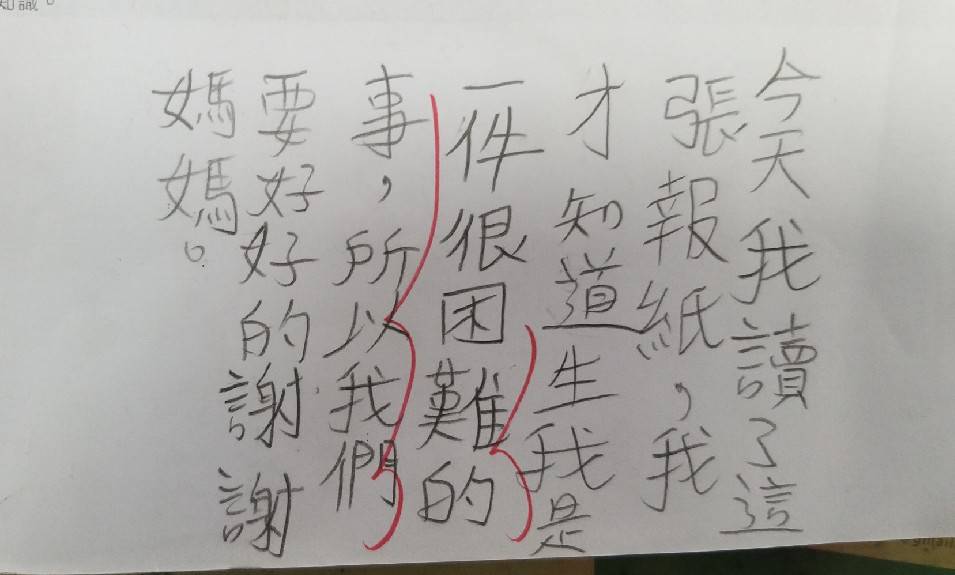 今天我讀了這
張報紙，我
才知道生我是
一件很困難的
事，所以我們
要好好的謝謝
媽媽。
知識。